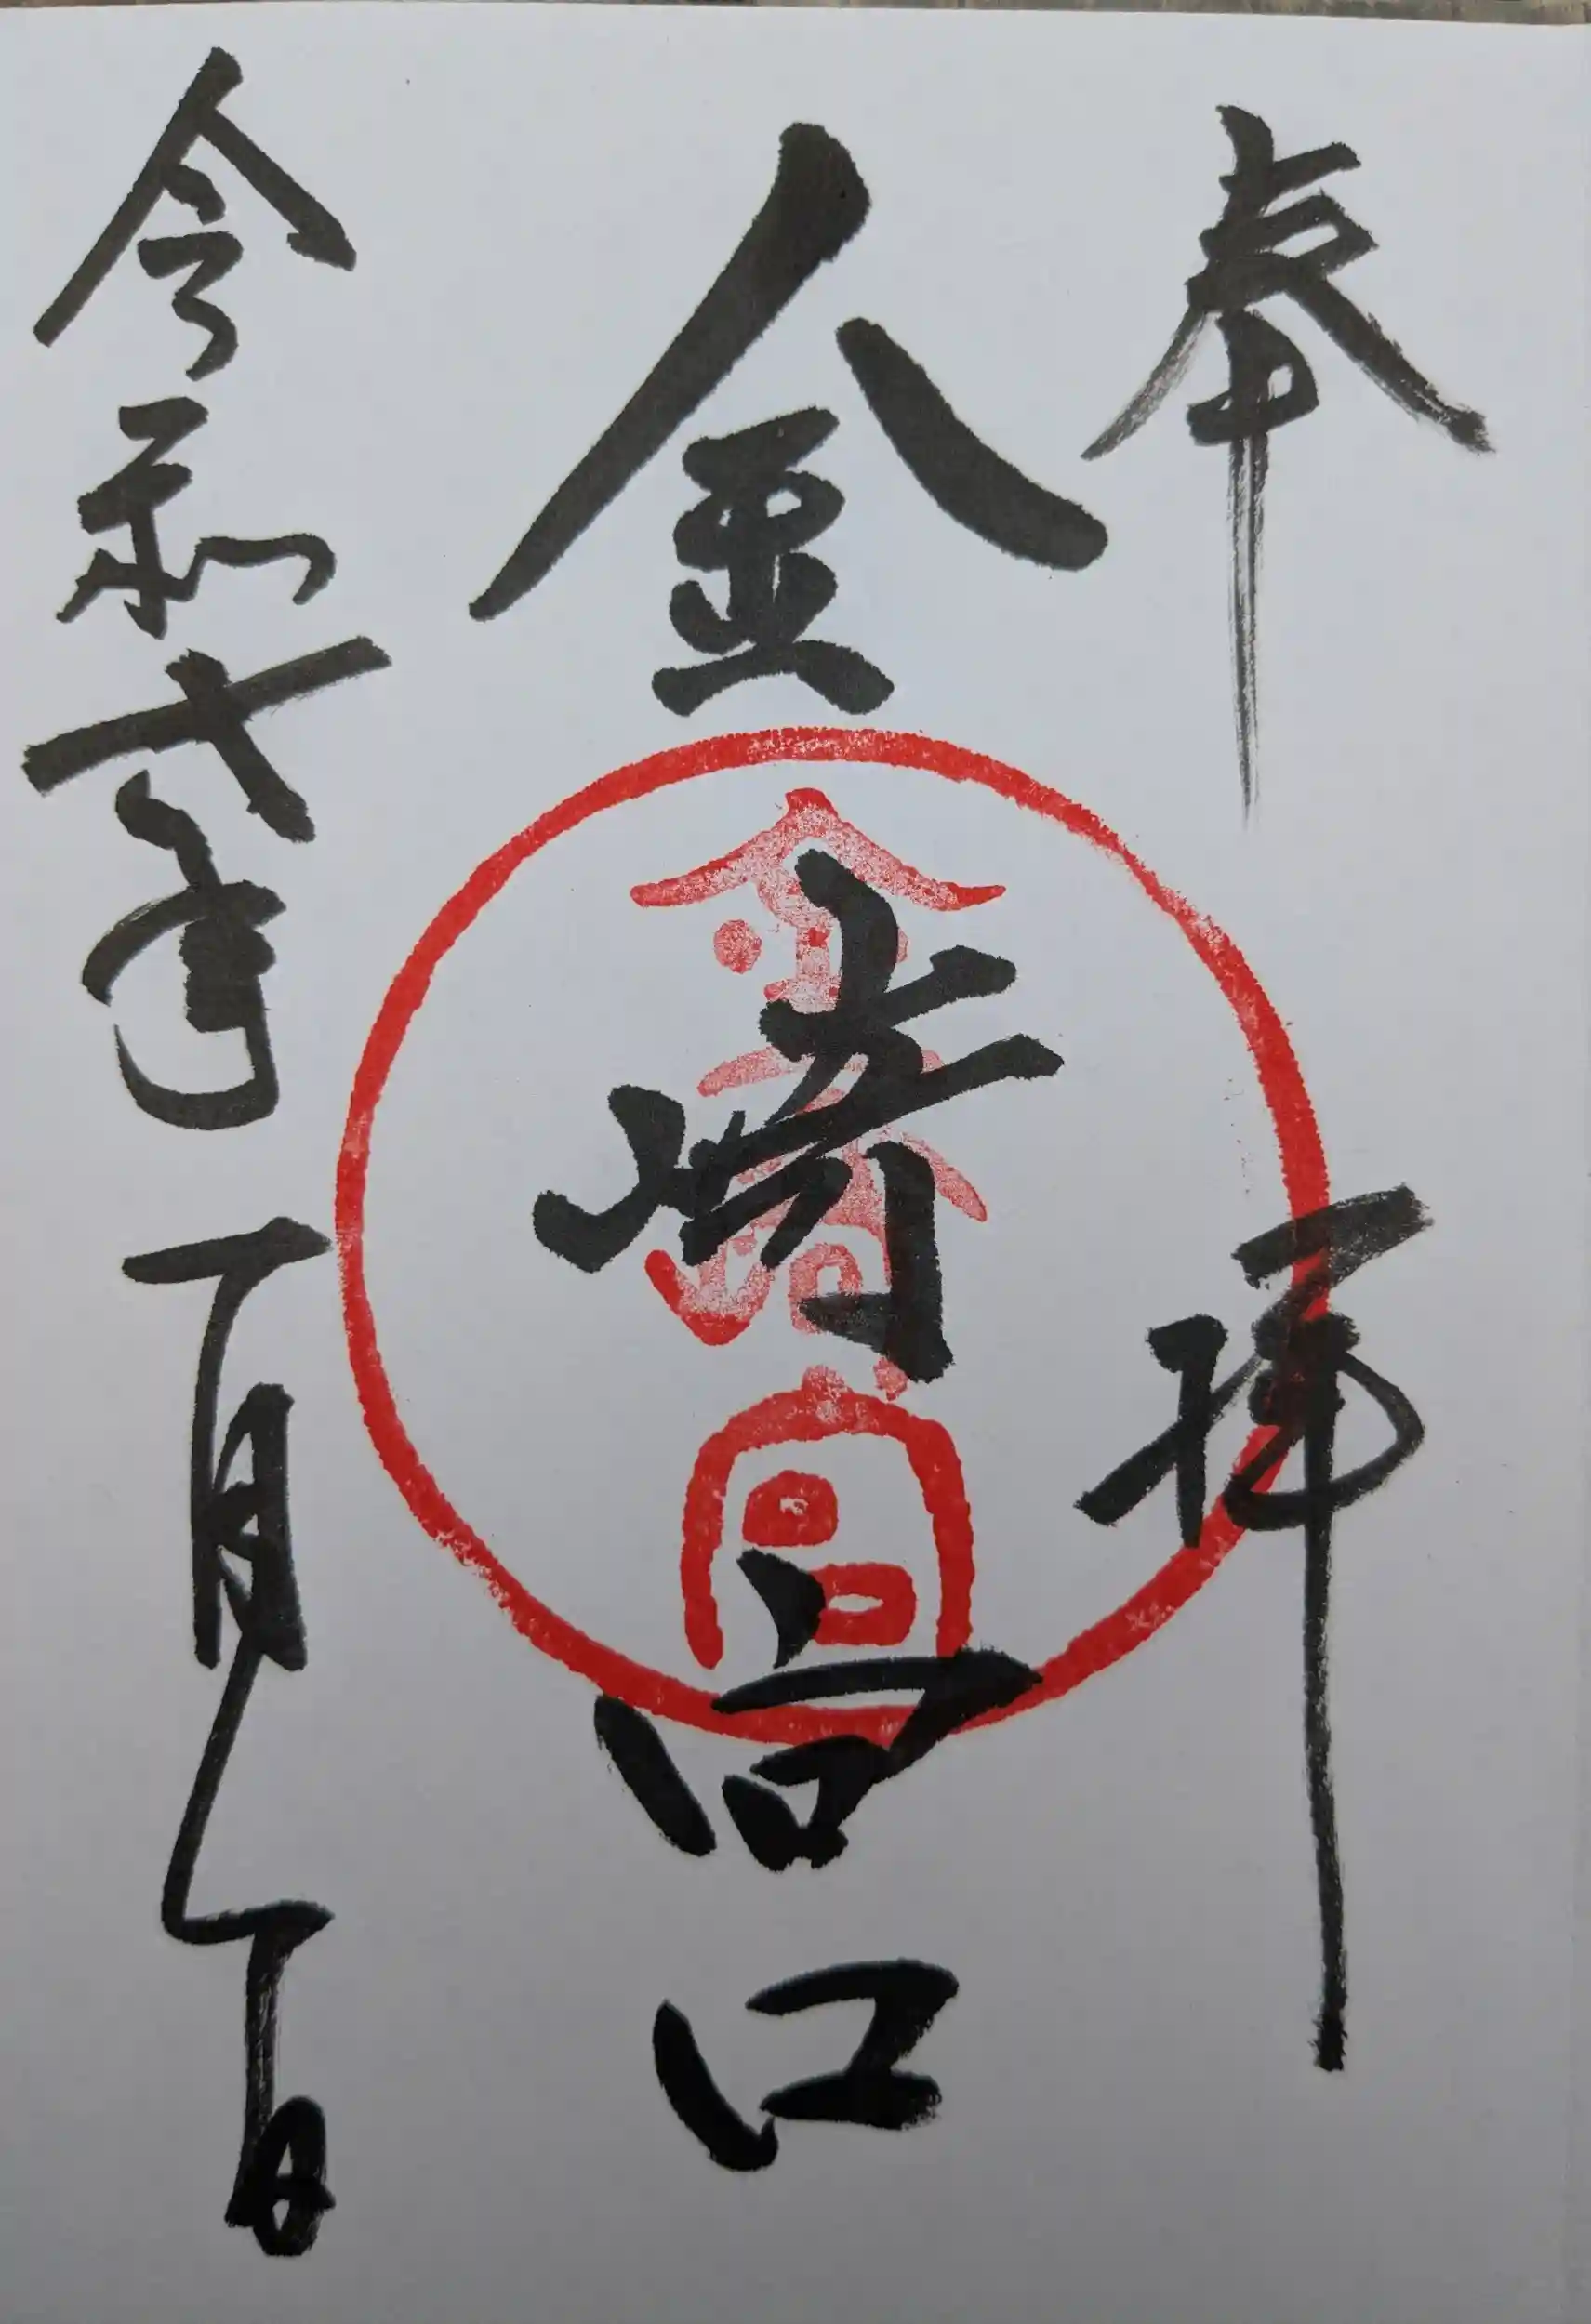 奉拝
金崎宮
金崎宮
令和 年一月一日